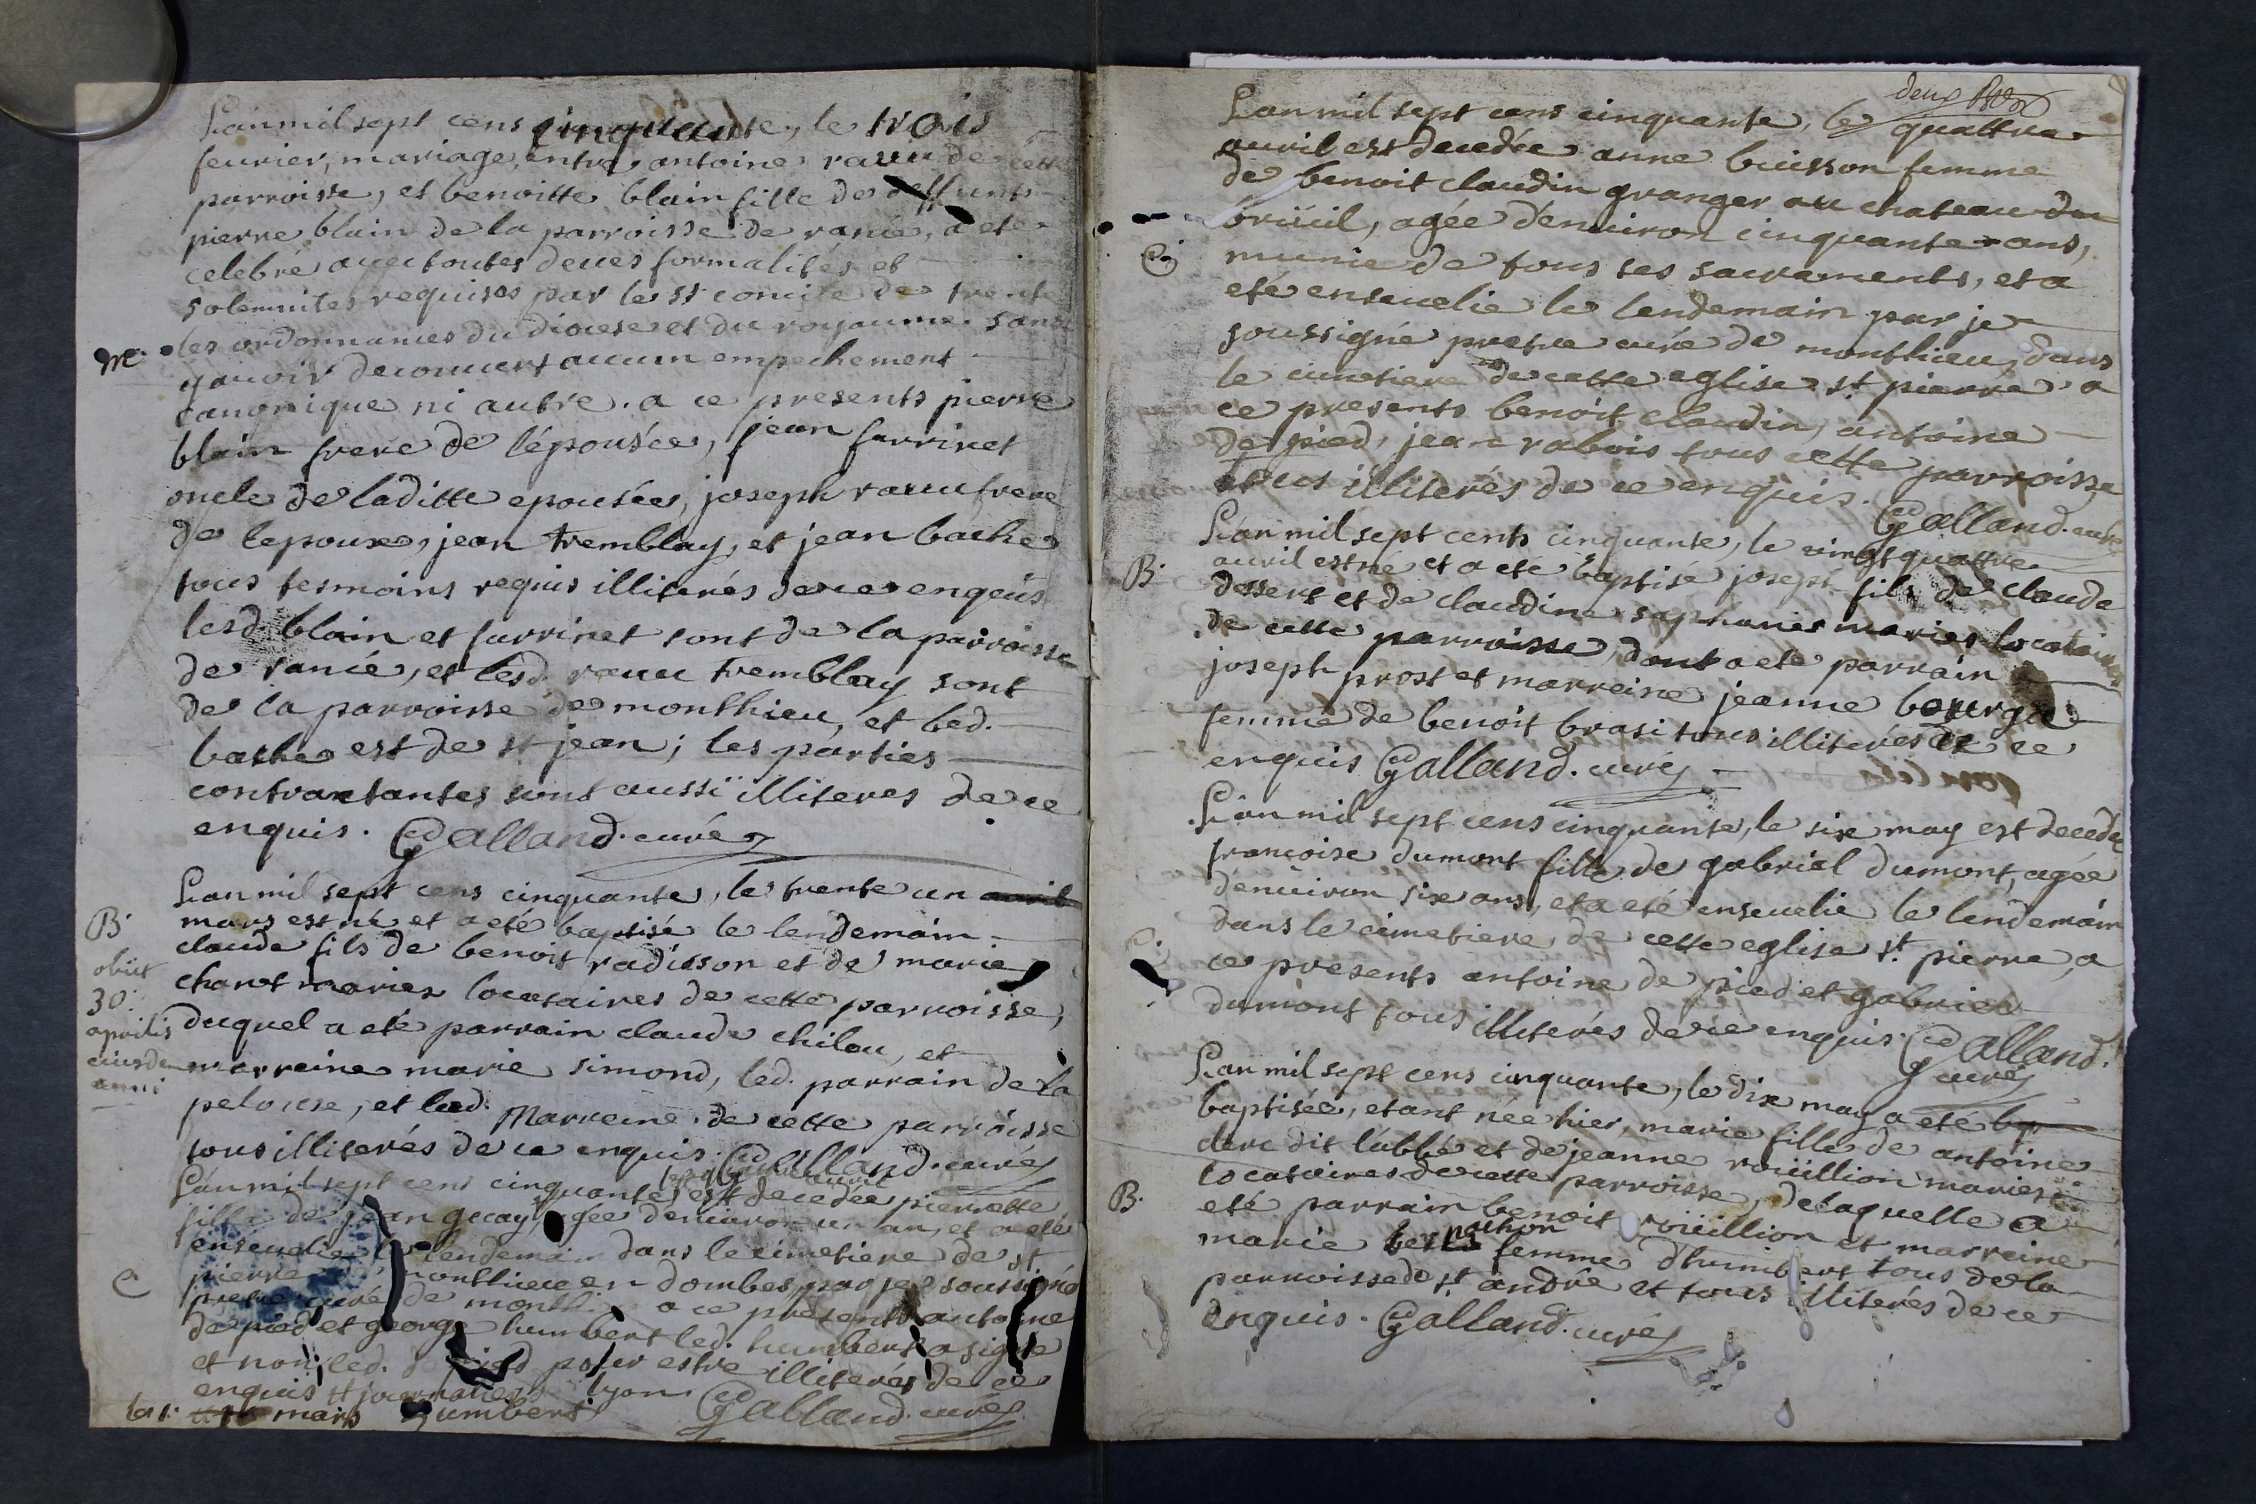 L'an mil sept cens cinquante, le trois
feurier, mariage entre antoine rauu de cette
parroisse, et benoitte blain fille de deffunt
pierre blain de la parroisse de rancé, a eté
celebré auec toutes deues formalités et
solemnites requises par le st concile de trente
les ordonnances du diocese et du royaume sans
M. y auoir decouuert aucun empechement
canonique ni autre. a ce presents pierre
blain frere de l'épousée, jean farrinet
oncle de laditte epousée, joseph rauu frere
de lepoux, jean tremblay, et jean bathe
tous tesmoins requis illiterés de ce enquis
lesd. blain et farrinet sont de la parroisse
de rancé, et lesd. rauu tremblay sont
de la parroisse de monthieu, et led.
bathe est de st jean; les parties
contractantes sont aussi illiteres de ce
enquis. Galland. curé
L'an mil sept cens cinquante, le trente un auril
B. mars est né et a eté baptisé le lendemain
claude fils de benoit radisson et de marie
obiit 30. aprilis eiusdem anni
chanet maries locataires de cette parroisse,
duquel a eté parrain claude chilou, et
marreine marie simond, led. parrain de la
pelouse, et lad. Marreine de cette parroisse
tous illiterés de ce enquis. Galland. curé
L'an mil sept cens cinquante est decedée pierrette
fille de jean gecay agée denuiron un an, et a eté
enseuelie le lendemain dans le cimetiere de st
C pierre de monthieu en dombes par je soussigné
pretre curé de monthieu a ce présents antoine
de pied et george humbert led. humbert a signé
et non led. de pied pour estre illiterés de ce
enquis et journalier lyon
mars humbert Galland. curé
deux
L'an mil sept cens cinquante, le quattre
auril est decedée anne buisson femme
de benoit claudin granger au chateau du
brüil, agée d'enuiron cinquante ans,
munie de tous ses sacrements, et a
eté enseuelie le lendemain par je
soussigné pretre curé de monthieu, dans
le cimetiere de cette eglise st. pierre a
ce presents benoit claudin, antoine
de pied, jean rabois tous cette parroisse
tous illiterés de ce enquis. Galland. curé
L'an mil sept cents cinquante, le vingt quattre
B. auril est né et a eté baptisé joseph fils de claude
dessert et de claudine maries locataires
de cette parroisse, dont a eté parrain
joseph prost et marreine jeanne
femme de benoit brasi tous illiteres de ce
enquis Galland. curé
L'an mil sept cens cinquante, le six may est decedée
francoise dumont fille de gabriel dumont, agée
d'enuiron six ans, et a eté enseuelie le lendemain
dans le cimetiere de cette eglise st. pierre, a
C. ce presents antoine de pied et gabriel
dumont tous illiterés de ce enquis. Galland.
curé
L'an mil sept cens cinquante, le dix may a eté
baptisée, etant née hier, marie fille de antoine
derc dit l'abbé et de jeanne roüillion maries
locataires de cette parroisse, de laquelle a
B. eté parrain benoit roüillion et marreine
marie bernathon femme d'humbert tous de la
parroisse de st. andré et tous illiterés de ce
enquis. Galland. curé